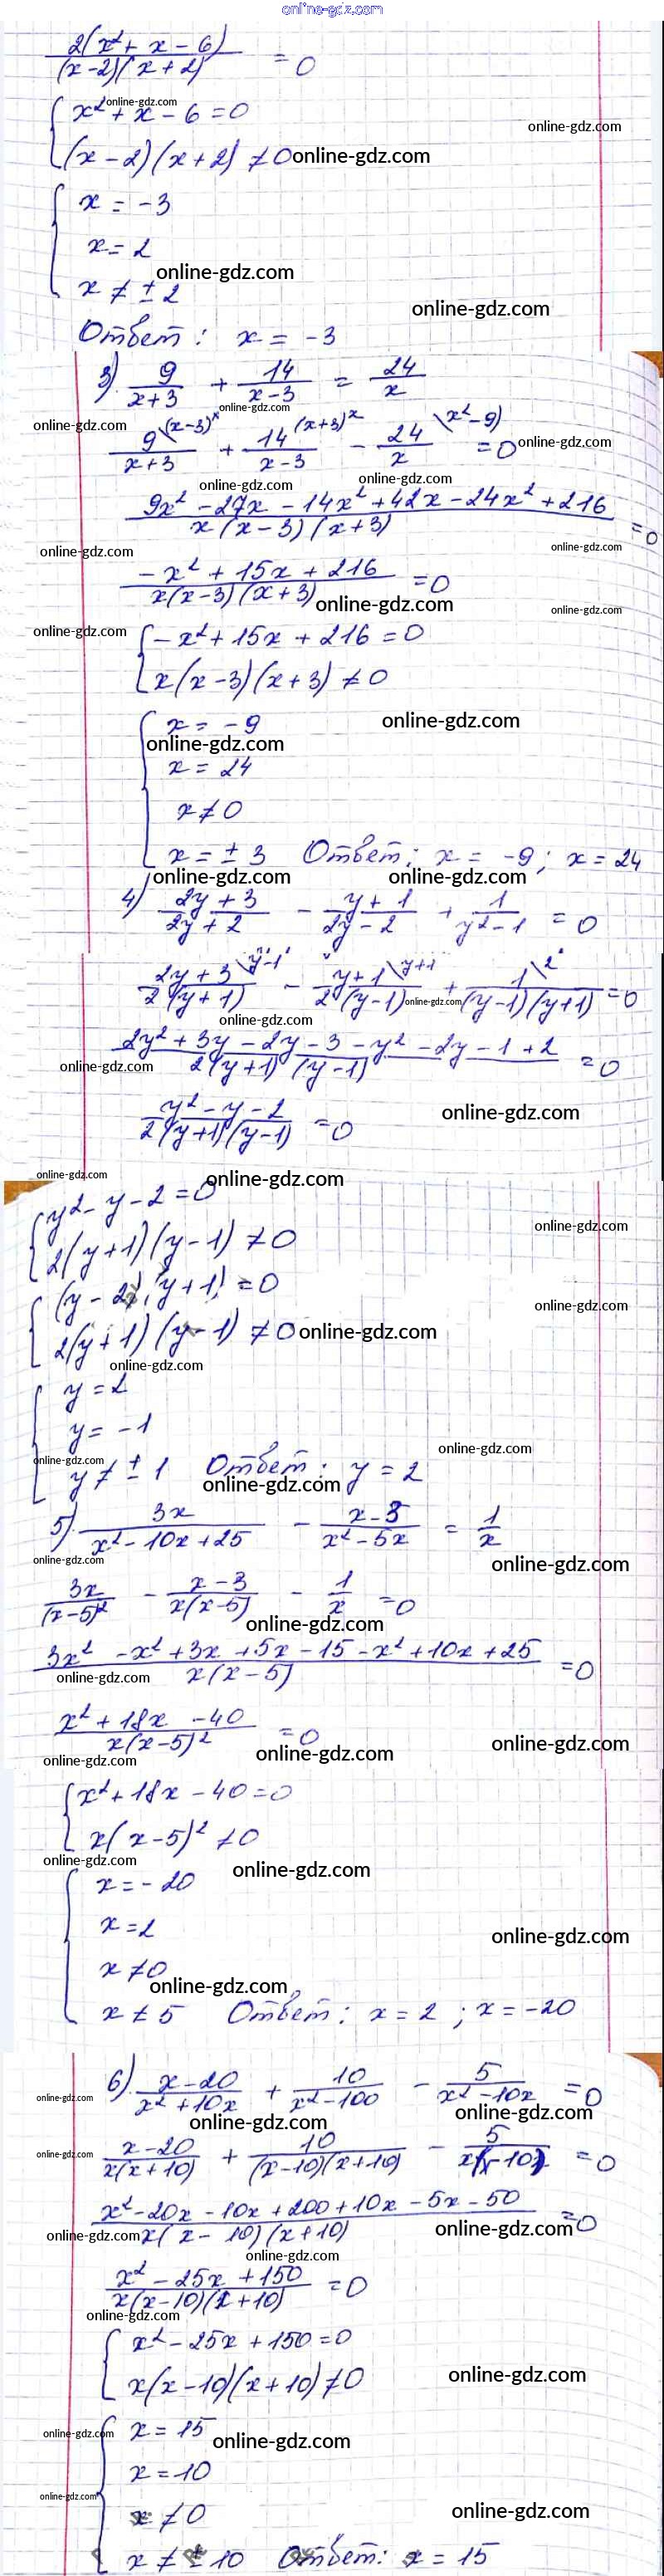 online-gdz.com
2(x² + x - 6) / (x-2)(x+2) = 0
online-gdz.com
{ x² + x - 6 = 0
online-gdz.com
(x - 2)(x + 2) ≠ 0 online-gdz.com
{ x = -3
x = 2
online-gdz.com
x ≠ ± 2
online-gdz.com
Ответ: x = -3
3) 9/(x+3) + 14/(x-3) = 24/x
online-gdz.com
online-gdz.com
9\(x-3)x/(x+3) + 14(x+3)x/(x-3) - 24\(x²-9)/x = 0 online-gdz.com
online-gdz.com online-gdz.com
(9x² - 27x - 14x² + 42x - 24x² + 216) / x(x-3)(x+3) = 0
online-gdz.com online-gdz.com
(-x² + 15x + 216) / x(x-3)(x+3) = 0
online-gdz.com online-gdz.com
online-gdz.com
{ -x² + 15x + 216 = 0
x(x-3)(x+3) ≠ 0
{ x = -9 online-gdz.com
online-gdz.com
x = 24
x ≠ 0
x = ± 3 Ответ: x = -9; x = 24
online-gdz.com online-gdz.com
4) (2y+3)/(2y+2) - (y+1)/(2y-2) + 1/(y²-1) = 0
(2y+3\y-1)/2(y+1) - (y+1\y+1)/2(y-1) + 1\2/(y-1)(y+1) = 0
online-gdz.com
online-gdz.com
(2y² + 3y - 2y - 3 - y² - 2y - 1 + 2) / 2(y+1)(y-1) = 0
online-gdz.com
(y² - y - 2) / 2(y+1)(y-1) = 0 online-gdz.com
online-gdz.com online-gdz.com
{ y² - y - 2 = 0
online-gdz.com
2(y+1)(y-1) ≠ 0
{ (y - 2)(y+1) = 0
online-gdz.com
2(y+1)(y-1) ≠ 0 online-gdz.com
online-gdz.com
{ y = 2
y = -1
online-gdz.com online-gdz.com
y ≠ ± 1 Ответ: y = 2
online-gdz.com
5) 3x/(x² - 10x + 25) - (x-3)/(x² - 5x) = 1/x
online-gdz.com online-gdz.com
3x/(x-5)² - (x-3)/x(x-5) - 1/x = 0
online-gdz.com
(3x² - x² + 3x + 5x - 15 - x² + 10x + 25) / x(x-5) = 0
online-gdz.com
(x² + 18x - 40) / x(x-5)² = 0 online-gdz.com
online-gdz.com online-gdz.com
{ x² + 18x - 40 = 0
x(x-5)² ≠ 0
online-gdz.com online-gdz.com
{ x = -20
x = 2
online-gdz.com
x ≠ 0
online-gdz.com
x ≠ 5 Ответ: x = 2; x = -20
6) (x-20)/(x² + 10x) + 10/(x² - 100) - 5/(x² - 10x) = 0
online-gdz.com online-gdz.com online-gdz.com
(x-20)/x(x+10) + 10/(x-10)(x+10) - 5/x(x-10) = 0
online-gdz.com
(x² - 20x - 10x + 200 + 10x - 5x - 50) / x(x-10)(x+10) = 0
online-gdz.com online-gdz.com
online-gdz.com
(x² - 25x + 150) / x(x-10)(x+10) = 0
online-gdz.com
{ x² - 25x + 150 = 0
x(x-10)(x+10) ≠ 0 online-gdz.com
{ x = 15
online-gdz.com online-gdz.com
x = 10
online-gdz.com
x ≠ 0 online-gdz.com
x ≠ ± 10 Ответ: x = 15